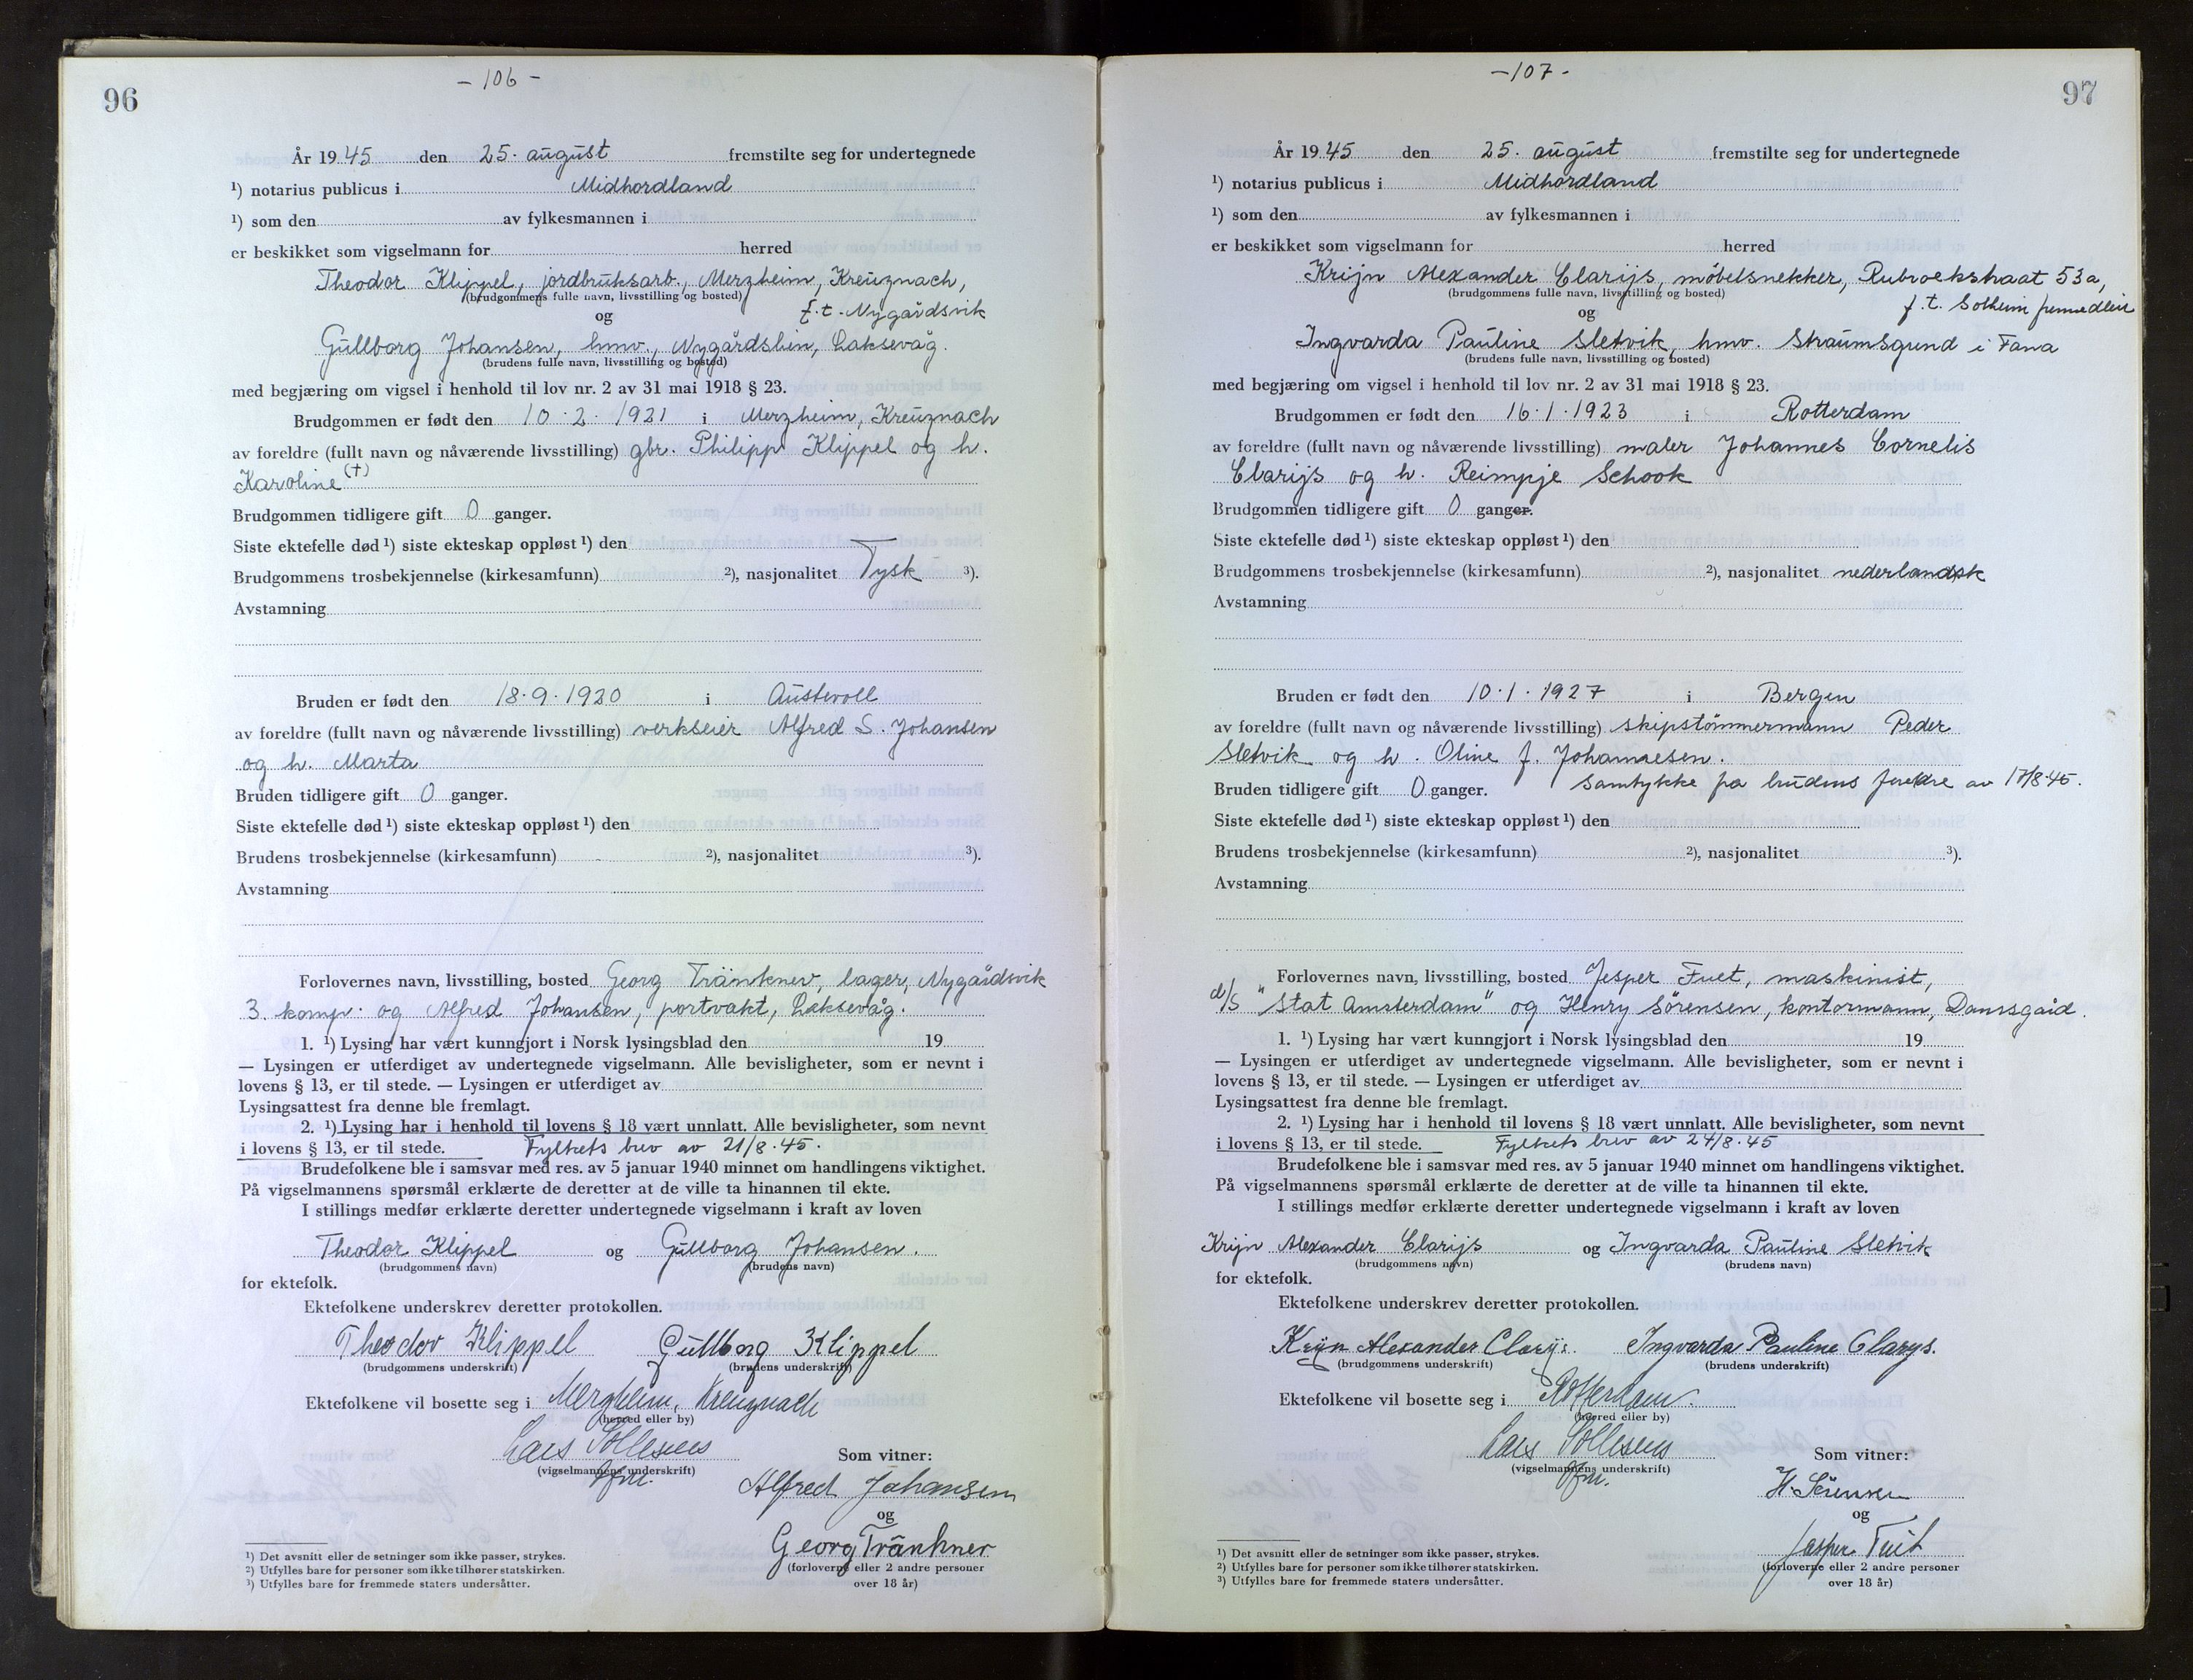 96
- 106 -
År 1945 den 25. august fremstilte seg for undertegnede
¹) notarius publicus i Midhordland
¹) som den av fylkesmannen i
er beskikket som vigselmann for herred
Theodor Klippel, jordbruksarb., Merzheim, Kreuznach,
(brudgommens fulle navn, livsstilling og bosted)
og f.t. Nygårdsvik
Gullborg Johansen, hmv., Nygårdslien, Laksevåg.
(brudens fulle navn, livsstilling og bosted)
med begjæring om vigsel i henhold til lov nr. 2 av 31 mai 1918 § 23.
Brudgommen er født den 10.2.1921 i Merzheim, Kreuznach
av foreldre (fullt navn og nåværende livsstilling) gbr. Philipp Klippel og h.
Karoline (†)
Brudgommen tidligere gift 0 ganger.
Siste ektefelle død ¹) siste ekteskap oppløst ¹) den
Brudgommens trosbekjennelse (kirkesamfunn) ²), nasjonalitet Tysk ³).
Avstamning
Bruden er født den 18.9.1920 i Austevoll
av foreldre (fullt navn og nåværende livsstilling) verkseier Alfred S. Johansen
og h. Marta
Bruden tidligere gift 0 ganger.
Siste ektefelle død ¹) siste ekteskap oppløst ¹) den
Brudens trosbekjennelse (kirkesamfunn) ²), nasjonalitet ³).
Avstamning
Forlovernes navn, livsstilling, bosted Georg Tränkner, lager, Nygårdsvik
3. komp. og Alfred Johansen, portvakt, Laksevåg.
1. ¹) Lysing har vært kunngjort i Norsk lysingsblad den 19
— Lysingen er utferdiget av undertegnede vigselmann. Alle bevisligheter, som er nevnt i
lovens § 13, er til stede. — Lysingen er utferdiget av
Lysingsattest fra denne ble fremlagt.
2. ¹) Lysing har i henhold til lovens § 18 vært unnlatt. Alle bevisligheter, som nevnt
i lovens § 13, er til stede. Fylkets brev av 21/8.45.
Brudefolkene ble i samsvar med res. av 5 januar 1940 minnet om handlingens viktighet.
På vigselmannens spørsmål erklærte de deretter at de ville ta hinannen til ekte.
I stillings medfør erklærte deretter undertegnede vigselmann i kraft av loven
Theodor Klippel og Gullborg Johansen.
(brudgommens navn) (brudens navn)
for ektefolk.
Ektefolkene underskrev deretter protokollen.
Theodor Klippel Gullborg Klippel
(brudgommens underskrift) (brudens underskrift)
Ektefolkene vil bosette seg i Merzheim, Kreuznach
(herred eller by)
Lars
(vigselmannens underskrift)
Som vitner:
Alfred Johansen
og
Georg Tränkner
(forloverne eller 2 andre personer
over 18 år)
¹) Det avsnitt eller de setninger som ikke passer, strykes.
²) Utfylles bare for personer som ikke tilhører statskirken.
³) Utfylles bare for fremmede staters undersåtter.
97
- 107 -
År 1945 den 25. august fremstilte seg for undertegnede
¹) notarius publicus i Midhordland
¹) som den av fylkesmannen i
er beskikket som vigselmann for herred
Krijn Alexander Clarijs, møbelsnekker, Rubroekstraat 53a,
(brudgommens fulle navn, livsstilling og bosted)
og f.t. Solheim
Ingvarda Pauline Sletvik, hmv. Straumsgrund i Fana
(brudens fulle navn, livsstilling og bosted)
med begjæring om vigsel i henhold til lov nr. 2 av 31 mai 1918 § 23.
Brudgommen er født den 16.1.1923 i Rotterdam
av foreldre (fullt navn og nåværende livsstilling) maler Johannes Cornelis
Clarijs og h. Reimpje Schook
Brudgommen tidligere gift 0 ganger.
Siste ektefelle død ¹) siste ekteskap oppløst ¹) den
Brudgommens trosbekjennelse (kirkesamfunn) ²), nasjonalitet nederlandsk
Avstamning
Bruden er født den 10.1.1927 i Bergen
av foreldre (fullt navn og nåværende livsstilling) skipstømmermann Peder
Sletvik og h. Oline f. Johannesen.
Bruden tidligere gift 0 ganger. Samtykke fra brudens foreldre av 17/8.45.
Siste ektefelle død ¹) siste ekteskap oppløst ¹) den
Brudens trosbekjennelse (kirkesamfunn) ²), nasjonalitet ³).
Avstamning
Forlovernes navn, livsstilling, bosted Jesper Fuet, maskinist,
d/s "Stat Amsterdam" og Henry Sørensen, kontormann, Damsgård.
1. ¹) Lysing har vært kunngjort i Norsk lysingsblad den 19
— Lysingen er utferdiget av undertegnede vigselmann. Alle bevisligheter, som er nevnt i
lovens § 13, er til stede. — Lysingen er utferdiget av
Lysingsattest fra denne ble fremlagt.
2. ¹) Lysing har i henhold til lovens § 18 vært unnlatt. Alle bevisligheter, som nevnt
i lovens § 13, er til stede. Fylkets brev av 24/8.45
Brudefolkene ble i samsvar med res. av 5 januar 1940 minnet om handlingens viktighet.
På vigselmannens spørsmål erklærte de deretter at de ville ta hinannen til ekte.
I stillings medfør erklærte deretter undertegnede vigselmann i kraft av loven
Krijn Alexander Clarijs og Ingvarda Pauline Sletvik
(brudgommens navn) (brudens navn)
for ektefolk.
Ektefolkene underskrev deretter protokollen.
Krijn Alexander Clarijs. Ingvarda Pauline Clarys.
(brudgommens underskrift) (brudens underskrift)
Ektefolkene vil bosette seg i Rotterdam.
(herred eller by)
Lars
(vigselmannens underskrift)
Som vitner:
H. Sørensen
og
(forloverne eller 2 andre personer
over 18 år)
¹) Det avsnitt eller de setninger som ikke passer, strykes.
²) Utfylles bare for personer som ikke tilhører statskirken.
³) Utfylles bare for fremmede staters undersåtter.